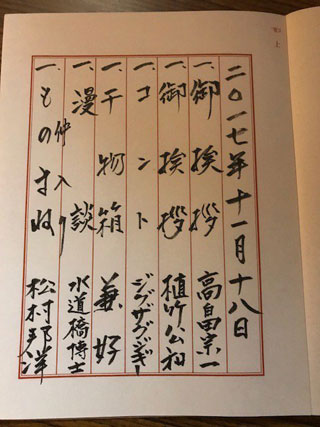 二〇一七年十一月十八日
一、御挨拶
一、御挨拶 植竹公和
一、コント ジグザグジギー
一、干物箱 兼好
一、漫談 水道橋博士
仲入り
一、ものまね 松村邦洋